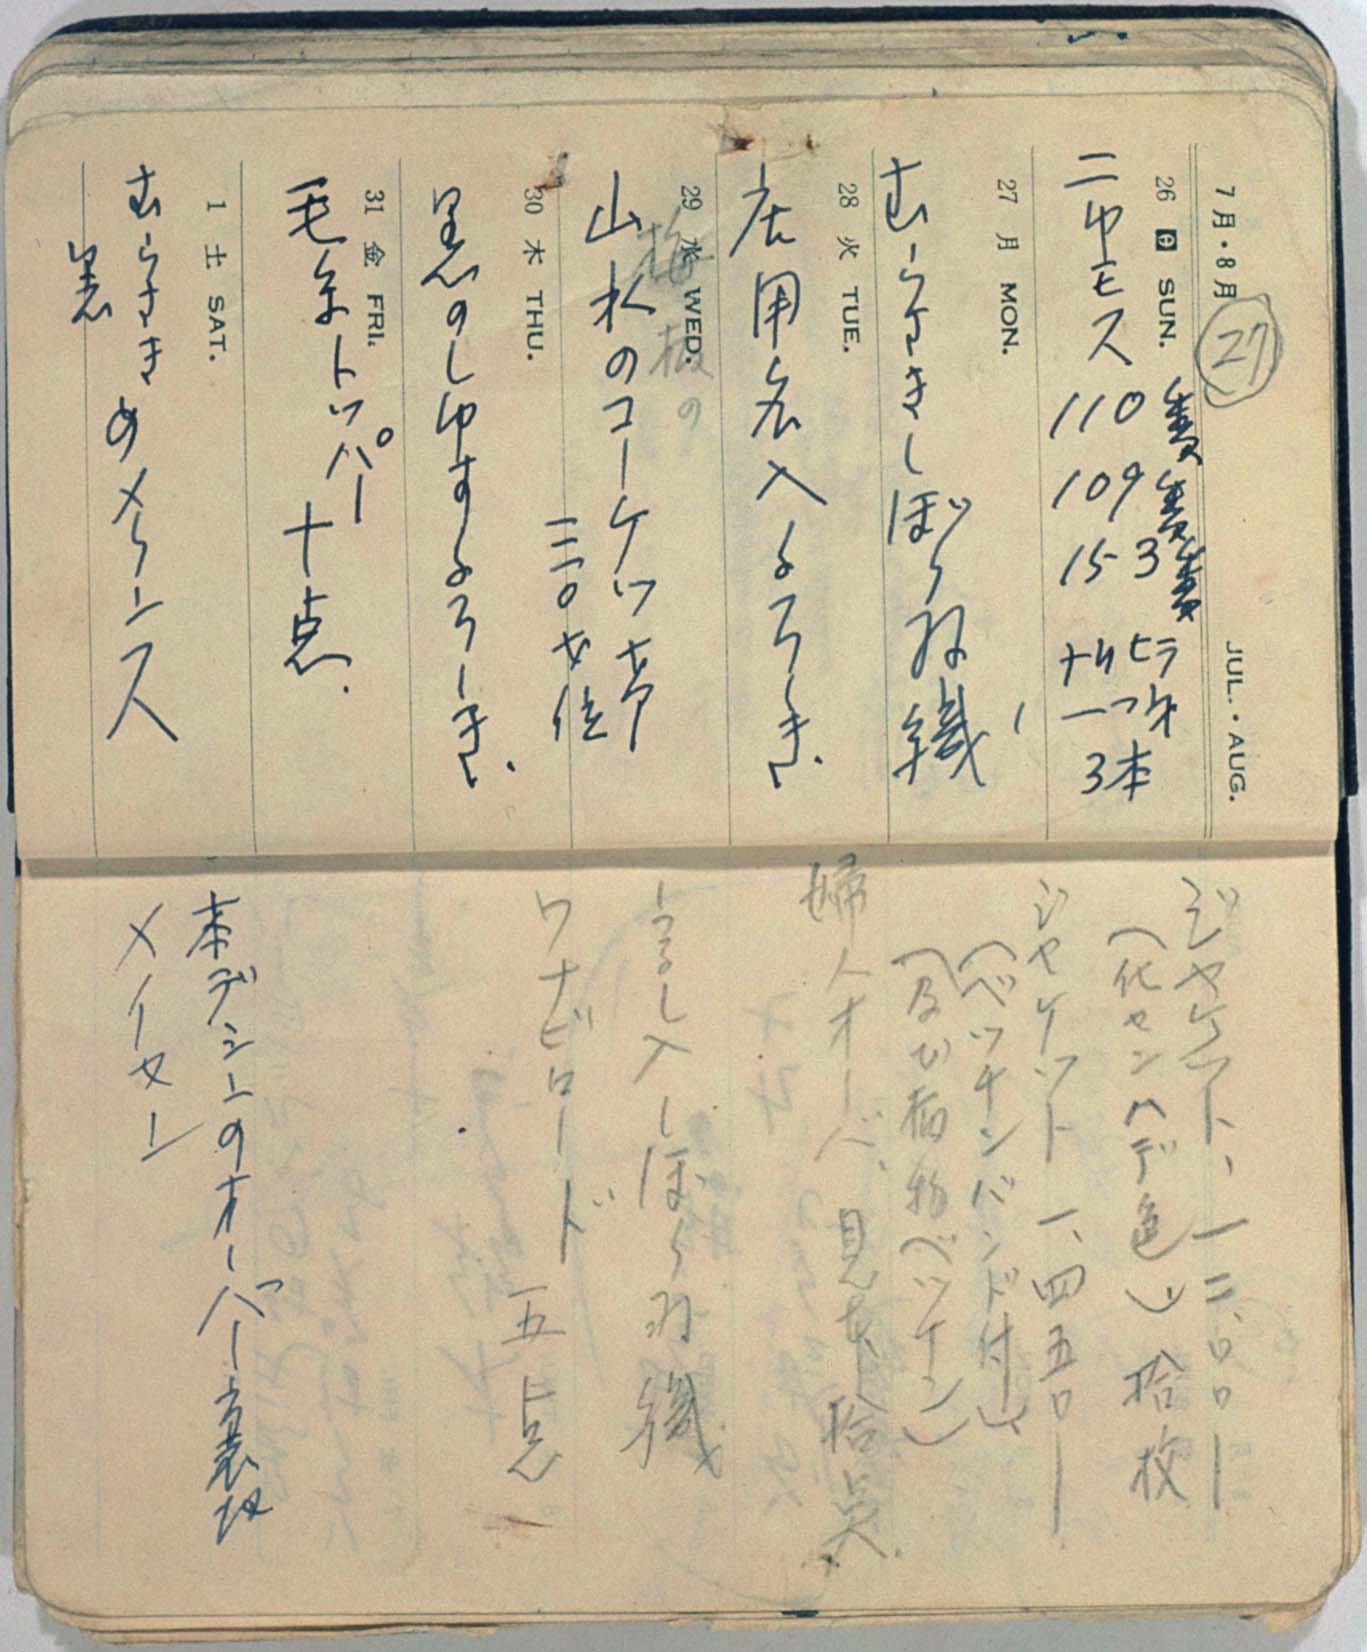 7月・8月 JUL.・AUG.
27
26 日 SUN.
二巾モス 110 109 153
3本
27 月 MON.
むらさきしぼり羽織
28 火 TUE.
29 水 WED.
山水のコーケツ帯
30 木 THU.
黒のしゆすよろしき.
31 金 FRI.
毛糸トッパー
十点.
1 土 SAT.
むらさきめメリンス
黒
ジャケット、一二、〇〇ー
(化センハデ色) 拾枚
ジャケット 一、四五〇ー
(ベッチンバンド付)
(及び柄物ベッチン)
婦人オーバー 見本拾点.
うるし入しぼり羽織
ワナビロード
五点
本デシンのオーバー裏
メイセン